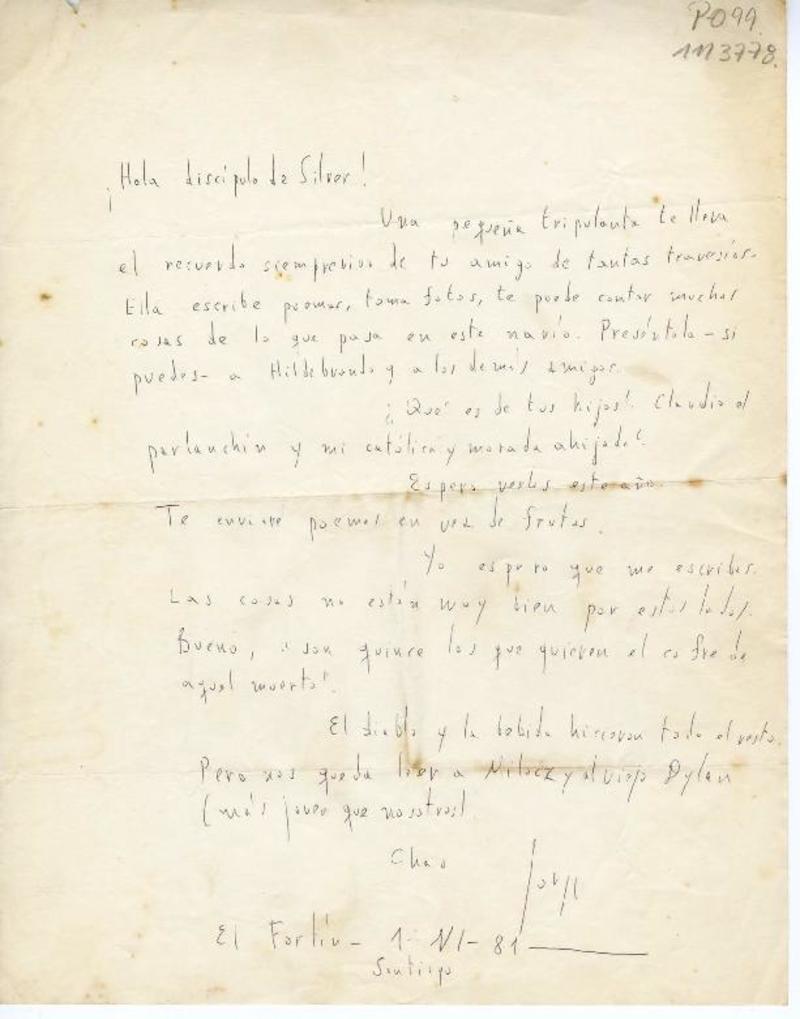 PO99.
1113778.
¡Hola discípulo de Silver!
Una pequeña tripulanta te lleva
el recuerdo siemprevivo de tu amigo de tantas travesías.
Ella escribe poemas, toma fotos, te puede contar muchas
cosas de lo que pasa en este navío. Preséntala - si
puedes - a Hildebrando y a los demás amigos.
¿Qué es de tus hijos? Claudio el
parlanchín y mi católica y morada ahijada?
Espero verlos este año.
Te enviaré poemas en vez de frutas.
Yo espero que me escribas.
Las cosas no están muy bien por estos lados.
Bueno, "son quince los que quieren el cofre de
aquel muerto".
El diablo y la bebida hicieron todo el resto.
Pero nos queda leer a Milosz y al viejo Dylan
(más joven que nosotros).
Chao
Jorge
El Fortín - 1 - VI - 81
Santiago